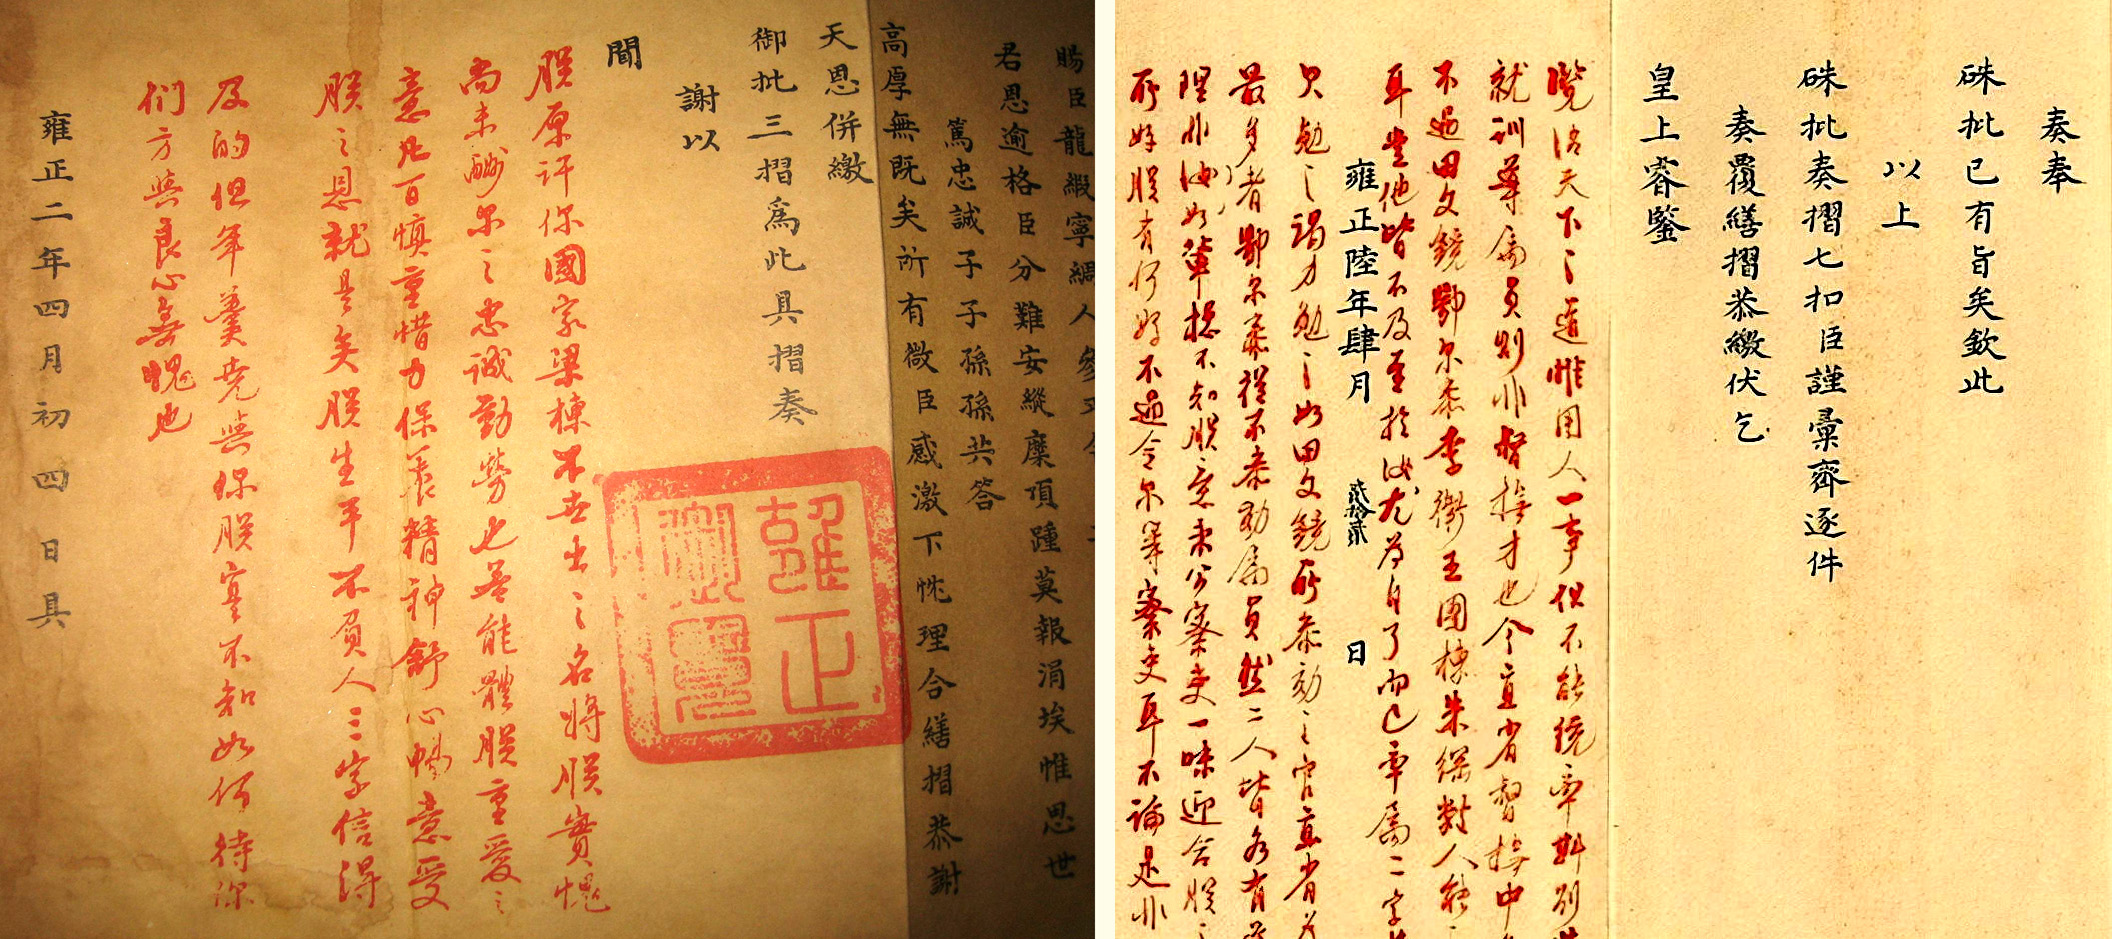 賜臣龍緞寧綢人參
君恩逾格臣分難安縱糜頂踵莫報涓埃惟思世
篤忠誠子子孫孫共答
高厚無既矣所有微臣感激下忱理合繕摺恭謝
天恩併繳
御批三摺為此具摺奏
謝以
聞
雍正
御覽
朕原許你國家梁棟不世出之名將朕實愧
尚未酬尔之忠誠勤勞也若能體朕重愛之
意凡百慎重惜力保養精神舒心暢意受
朕之恩就是矣朕生平不負人三字信得
及的但年羹堯與你朕寔不知如何待你
們方與良心無愧也
雍正二年四月初四日具
奏奉
硃批已有旨矣欽此
以上
硃批奏摺七扣臣謹彙齊逐件
奏覆繕摺恭繳伏乞
皇上睿鑒
覽治天下之道惟用人一事但不能統率料別
就訓導屬員則非督撫才也今直省督撫中
不過田文鏡鄂尔泰李衛王國棟朱綱對人能
耳豈他皆不及至於汝尤為自了而已率屬二字
雍正陸年肆月貳拾貳日
只勉之竭力勉之如田文鏡所參劾之官直省為
最多者鄂尔泰從不參劾屬員然二人皆各有
理非汝如輩總不知朕意未公察吏一味迎合朕之
所好朕有何好不過令尔等察吏耳不論是非